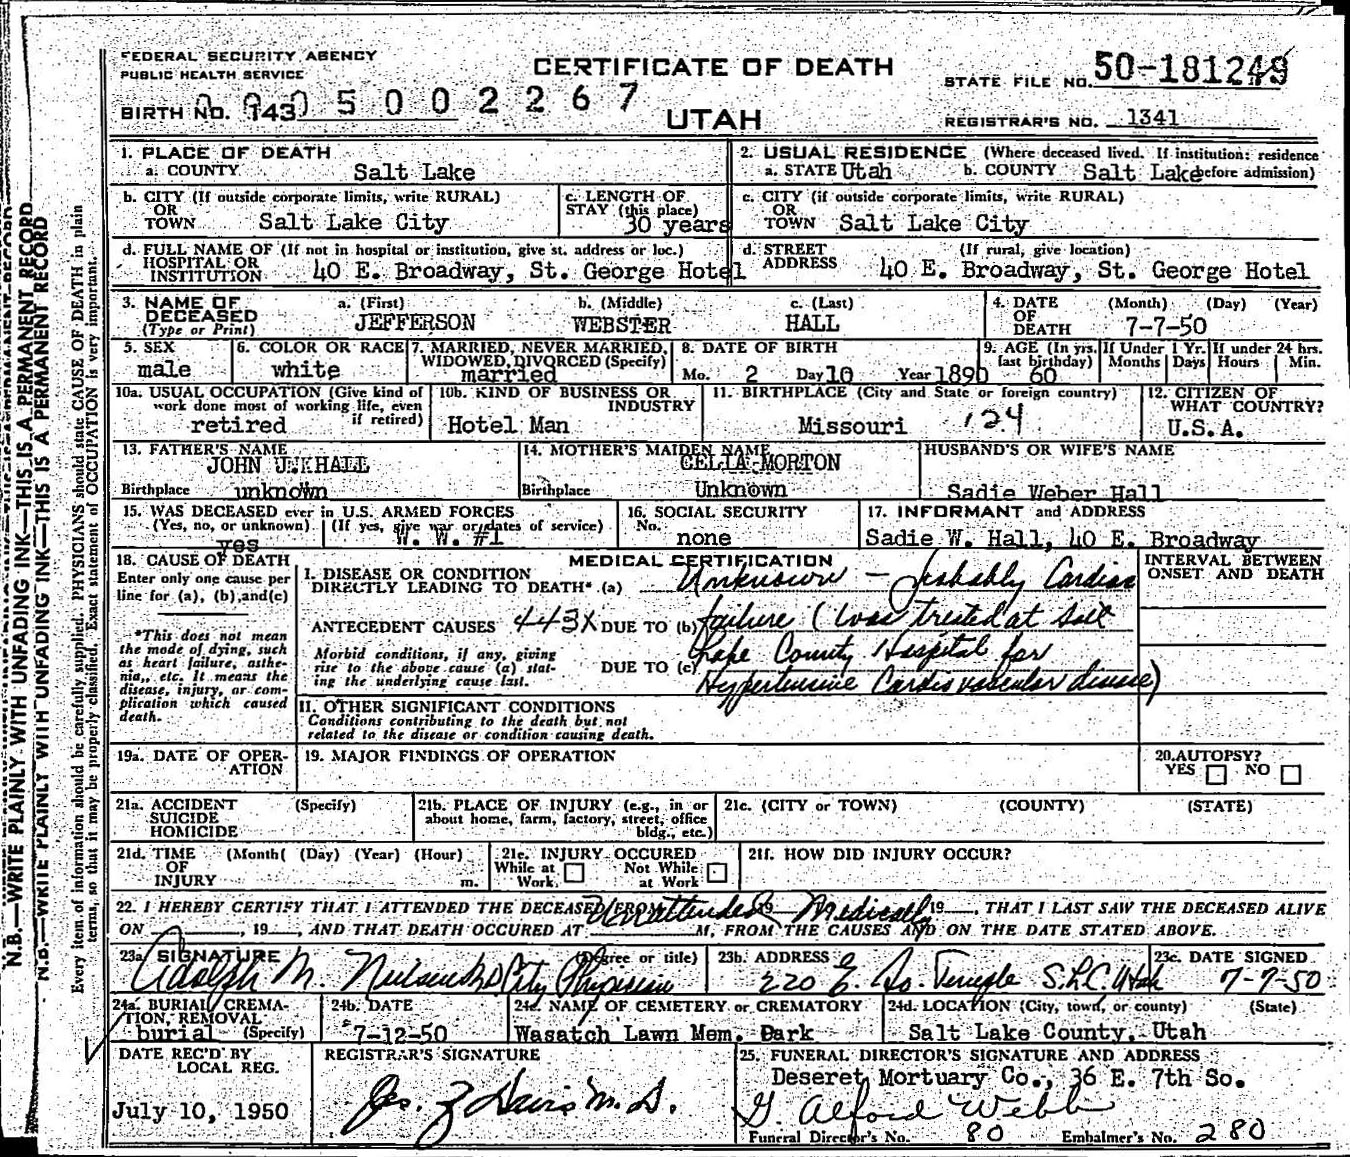 FEDERAL SECURITY AGENCY
PUBLIC HEALTH SERVICE
CERTIFICATE OF DEATH
STATE FILE NO. 50-181249
BIRTH NO. 143 0 5 0 0 2 2 6 7
UTAH
REGISTRAR'S NO. 1341
1. PLACE OF DEATH
a. COUNTY Salt Lake
2. USUAL RESIDENCE (Where deceased lived. If institution: residence before admission)
a. STATE Utah b. COUNTY Salt Lake
b. CITY (If outside corporate limits, write RURAL)
OR
TOWN Salt Lake City
c. LENGTH OF
STAY (this place)
30 years
c. CITY (if outside corporate limits, write RURAL)
OR
TOWN Salt Lake City
d. FULL NAME OF (If not in hospital or institution, give st. address or loc.)
HOSPITAL OR
INSTITUTION 40 E. Broadway, St. George Hotel
d. STREET (If rural, give location)
ADDRESS 40 E. Broadway, St. George Hotel
3. NAME OF
DECEASED
(Type or Print)
a. (First) b. (Middle) c. (Last)
JEFFERSON WEBSTER HALL
4. DATE (Month) (Day) (Year)
OF
DEATH 7-7-50
5. SEX
male
6. COLOR OR RACE
white
7. MARRIED, NEVER MARRIED,
WIDOWED, DIVORCED (Specify)
married
8. DATE OF BIRTH
Mo. 2 Day 10 Year 1890
9. AGE (In yrs. last birthday) 60
If Under 1 Yr.
Months Days
If under 24 hrs.
Hours Min.
10a. USUAL OCCUPATION (Give kind of
work done most of working life, even
if retired)
retired
10b. KIND OF BUSINESS OR
INDUSTRY
Hotel Man
11. BIRTHPLACE (City and State or foreign country)
Missouri 124
12. CITIZEN OF
WHAT COUNTRY?
U.S.A.
13. FATHER'S NAME
JOHN UNKHALL
Birthplace unknown
14. MOTHER'S MAIDEN NAME
CELIA MORTON
Birthplace Unknown
HUSBAND'S OR WIFE'S NAME
Sadie Weber Hall
15. WAS DECEASED ever in U.S. ARMED FORCES
(Yes, no, or unknown) (If yes, give war or dates of service)
yes W. W. #1
16. SOCIAL SECURITY
No. none
17. INFORMANT and ADDRESS
Sadie W. Hall, 40 E. Broadway
18. CAUSE OF DEATH
Enter only one cause per
line for (a), (b), and (c)
*This does not mean
the mode of dying, such
as heart failure, asthe-
nia, etc. It means the
disease, injury, or com-
plication which caused
death.
MEDICAL CERTIFICATION
I. DISEASE OR CONDITION
DIRECTLY LEADING TO DEATH* (a) Unknown - probably Cardiac
ANTECEDENT CAUSES 443X DUE TO (b) failure (Was treated at Salt
Morbid conditions, if any, giving
rise to the above cause (a) stat-
ing the underlying cause last.
DUE TO (c) Lake County Hospital for
Hypertensive Cardiovascular disease)
INTERVAL BETWEEN
ONSET AND DEATH
II. OTHER SIGNIFICANT CONDITIONS
Conditions contributing to the death but not
related to the disease or condition causing death.
19a. DATE OF OPER-
ATION
19. MAJOR FINDINGS OF OPERATION
20. AUTOPSY?
YES NO
21a. ACCIDENT (Specify)
SUICIDE
HOMICIDE
21b. PLACE OF INJURY (e.g., in or
about home, farm, factory, street, office
bldg., etc.)
21c. (CITY or TOWN) (COUNTY) (STATE)
21d. TIME (Month( (Day) (Year) (Hour)
OF
INJURY m.
21e. INJURY OCCURED
While at
Work
Not While
at Work
21f. HOW DID INJURY OCCUR?
22. I HEREBY CERTIFY THAT I ATTENDED THE DECEASED FROM Unattended Medically 19 , THAT I LAST SAW THE DECEASED ALIVE
ON , 19 , AND THAT DEATH OCCURED AT M, FROM THE CAUSES AND ON THE DATE STATED ABOVE.
23a. SIGNATURE (Degree or title)
Adolph M. Nielsen MD City Physician
23b. ADDRESS
220 E. So. Temple S.L.C. Utah
23c. DATE SIGNED
7-7-50
24a. BURIAL, CREMA-
TION, REMOVAL
burial (Specify)
24b. DATE
7-12-50
24c. NAME OF CEMETERY or CREMATORY
Wasatch Lawn Mem. Park
24d. LOCATION (City, town, or county) (State)
Salt Lake County, Utah
DATE REC'D BY
LOCAL REG.
July 10, 1950
REGISTRAR'S SIGNATURE
Jos. Z Davis M.D.
25. FUNERAL DIRECTOR'S SIGNATURE AND ADDRESS
Deseret Mortuary Co., 36 E. 7th So.
G. Alford Webb
Funeral Director's No. 80 Embalmer's No. 280
N.B.—WRITE PLAINLY WITH UNFADING INK—THIS IS A PERMANENT RECORD
N.B.—WRITE PLAINLY WITH UNFADING INK—THIS IS A PERMANENT RECORD
Every item of information should be carefully supplied. PHYSICIANS should state CAUSE OF DEATH in plain
terms, so that it may be properly classified. Exact statement of OCCUPATION is very important.